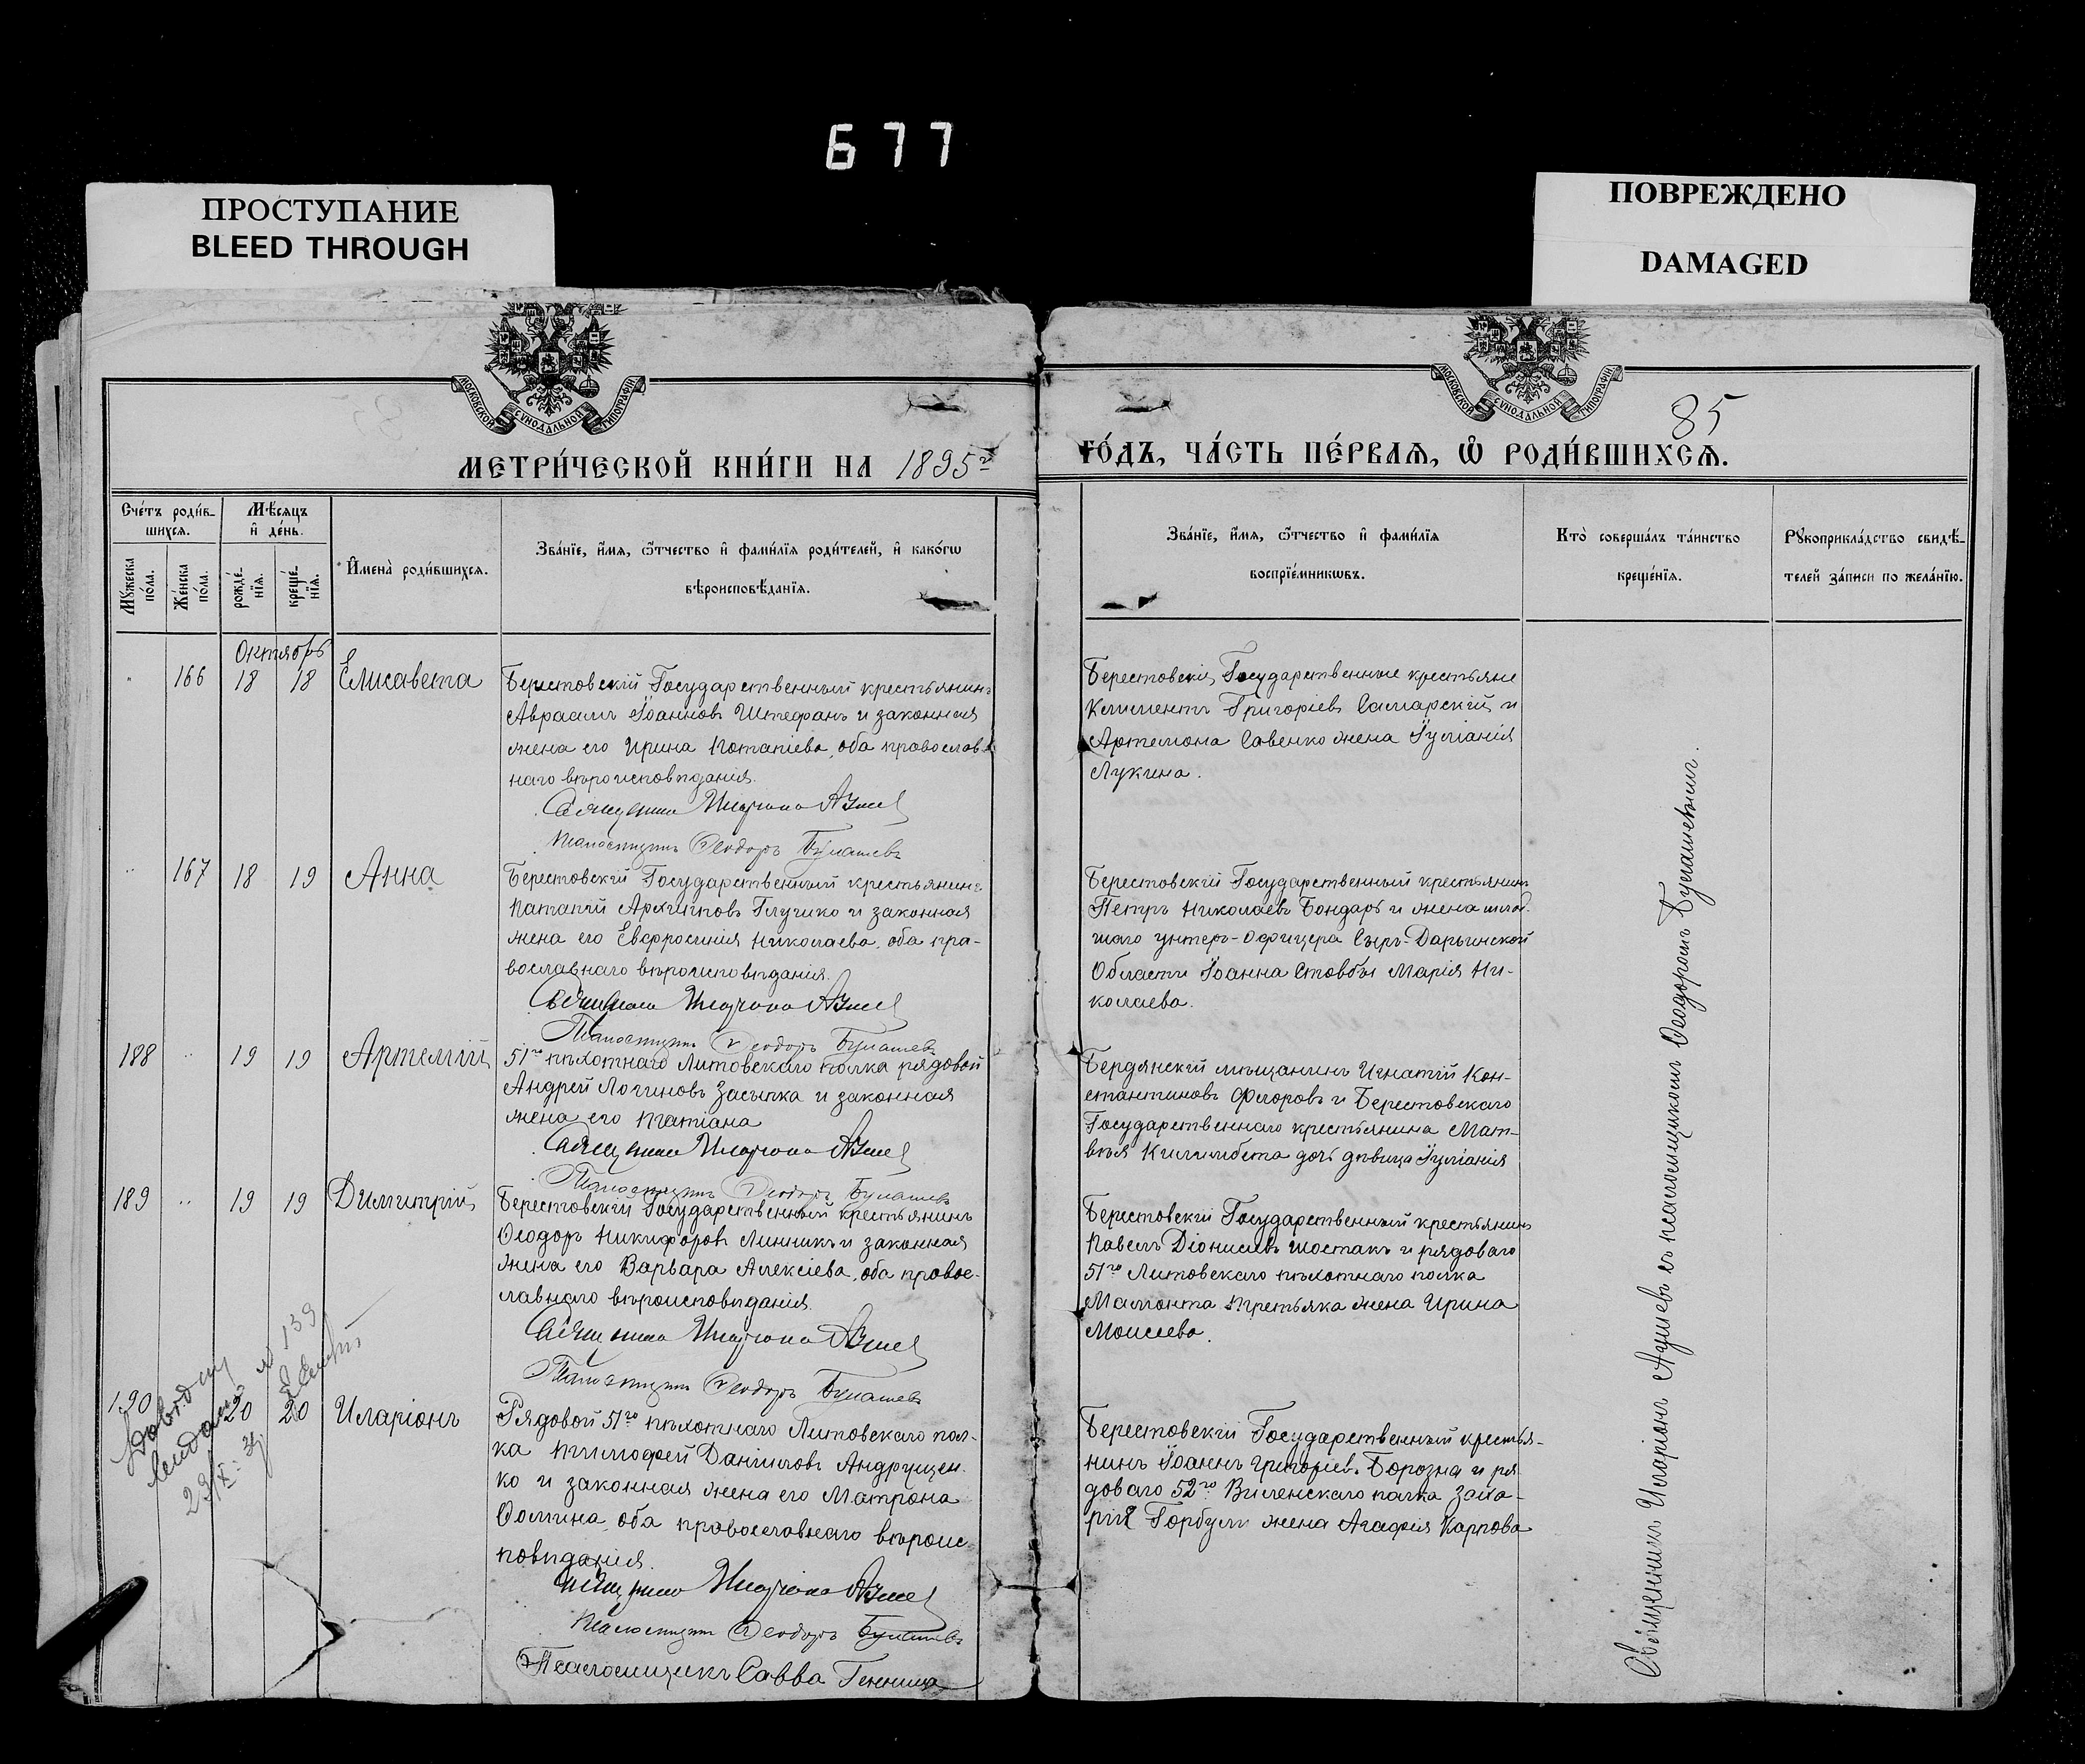 677
ПРОСТУПАНИЕ
BLEED THROUGH
ПОВРЕЖДЕНО
DAMAGED
МОСКОВСКОЙ СѴНОДАЛЬНОЙ ТИПОГРАФІИ
МОСКОВСКОЙ СѴНОДАЛЬНОЙ ТИПОГРАФІИ
85
МЕТРИ́ЧЕСКОЙ КНИ́ГИ НА 1895 г
ГО́ДЪ, ЧА́СТЬ ПЕ́РВАѦ, Ѡ҆ РОДИ́ВШИХСѦ.
Сче́тъ роди́в-
шихся.
Мѣ́сяцъ
и҆ де́нь.
Мꙋ́жеска
по́ла.
Же́нска
по́ла.
рожде́-
нїя.
креще́-
нїя.
И҆мена̀ роди́вшихся.
Зва́нїе, и҆́мя, ѻ҆́тчество и҆ фами́лїя роди́телей, и҆ како́гѡ
вѣроисповѣ́данїя.
Зва́нїе, и҆́мя, ѻ҆́тчество и҆ фами́лїя
воспрїе́мникѡвъ.
Кто̀ соверша́лъ та́инство
креще́нїя.
Рꙋкоприкла́дство свидѣ́-
телей за́писи по жела́нїю.
Октябрь
" 166 18 18 Елисавета
Берестовскій Государственный крестьянинъ
Авраамъ Іоанновъ Штефанъ и законная
жена его Ирина Потапіева, оба православ-
наго вѣроисповѣданія.
Священникъ Иларіонъ
Псаломщикъ Ѳеодоръ
Берестовскіе Государственные крестьяне
Климентъ Григоріевъ Самарскій и
Артемона Савенко жена Іуліанія
Лукина.
" 167 18 19 Анна
Берестовскій Государственный крестьянинъ
Патапій Архиповъ Глушко и законная
жена его Евфросинія Николаева, оба пра-
вославнаго вѣроисповѣданія.
Священникъ Иларіонъ
Псаломщикъ Ѳеодоръ
Берестовскій Государственный крестьянинъ
Петръ Николаевъ Бондарь и жена млад-
шаго унтеръ-офицера Сыръ-Дарьинской
Области Іоанна Стовбы Марія Ни-
колаева.
188 " 19 19 Артемій
51го пѣхотнаго Литовскаго полка рядовой
Андрей Логиновъ Засыпка и законная
жена его Татіана
Священникъ Иларіонъ
Псаломщикъ Ѳеодоръ
Бердянскій мѣщанинъ Игнатій Кон-
стантиновъ Флоровъ и Берестовскаго
Государственнаго крестьянина Мат-
вѣя дочь дѣвица Іуліанія
189 " 19 19 Димитрій
Берестовскій Государственный крестьянинъ
Ѳеодоръ Никифоровъ Линникъ и законная
жена его Варвара Алексіева, оба правос-
лавнаго вѣроисповѣданія.
Священникъ Иларіонъ
Псаломщикъ Ѳеодоръ
Берестовскій Государственный крестьянинъ
Павелъ Діонисіевъ Шостакъ и рядоваго
51го Литовскаго пѣхотнаго полка
Мамонта Третьяка жена Ирина
Моисеева.
№ 139
190 20 20 Иларіонъ
Рядовой 51го пѣхотнаго Литовскаго пол-
ка Тимофей Даніиловъ Андрущен-
ко и законная жена его Матрона
Ѳомина, оба православнаго вѣроис-
повѣданія.
Священникъ Иларіонъ
Псаломщикъ Ѳеодоръ
Псаломщикъ Савва
Берестовскій Государственный крестья-
нинъ Іоаннъ Григоріевъ Борозна и ря-
доваго 52го Виленскаго полка Заха-
рія Горбули жена Агафія Карпова
Священникъ Иларіонъ съ псаломщикомъ Ѳеодоромъ